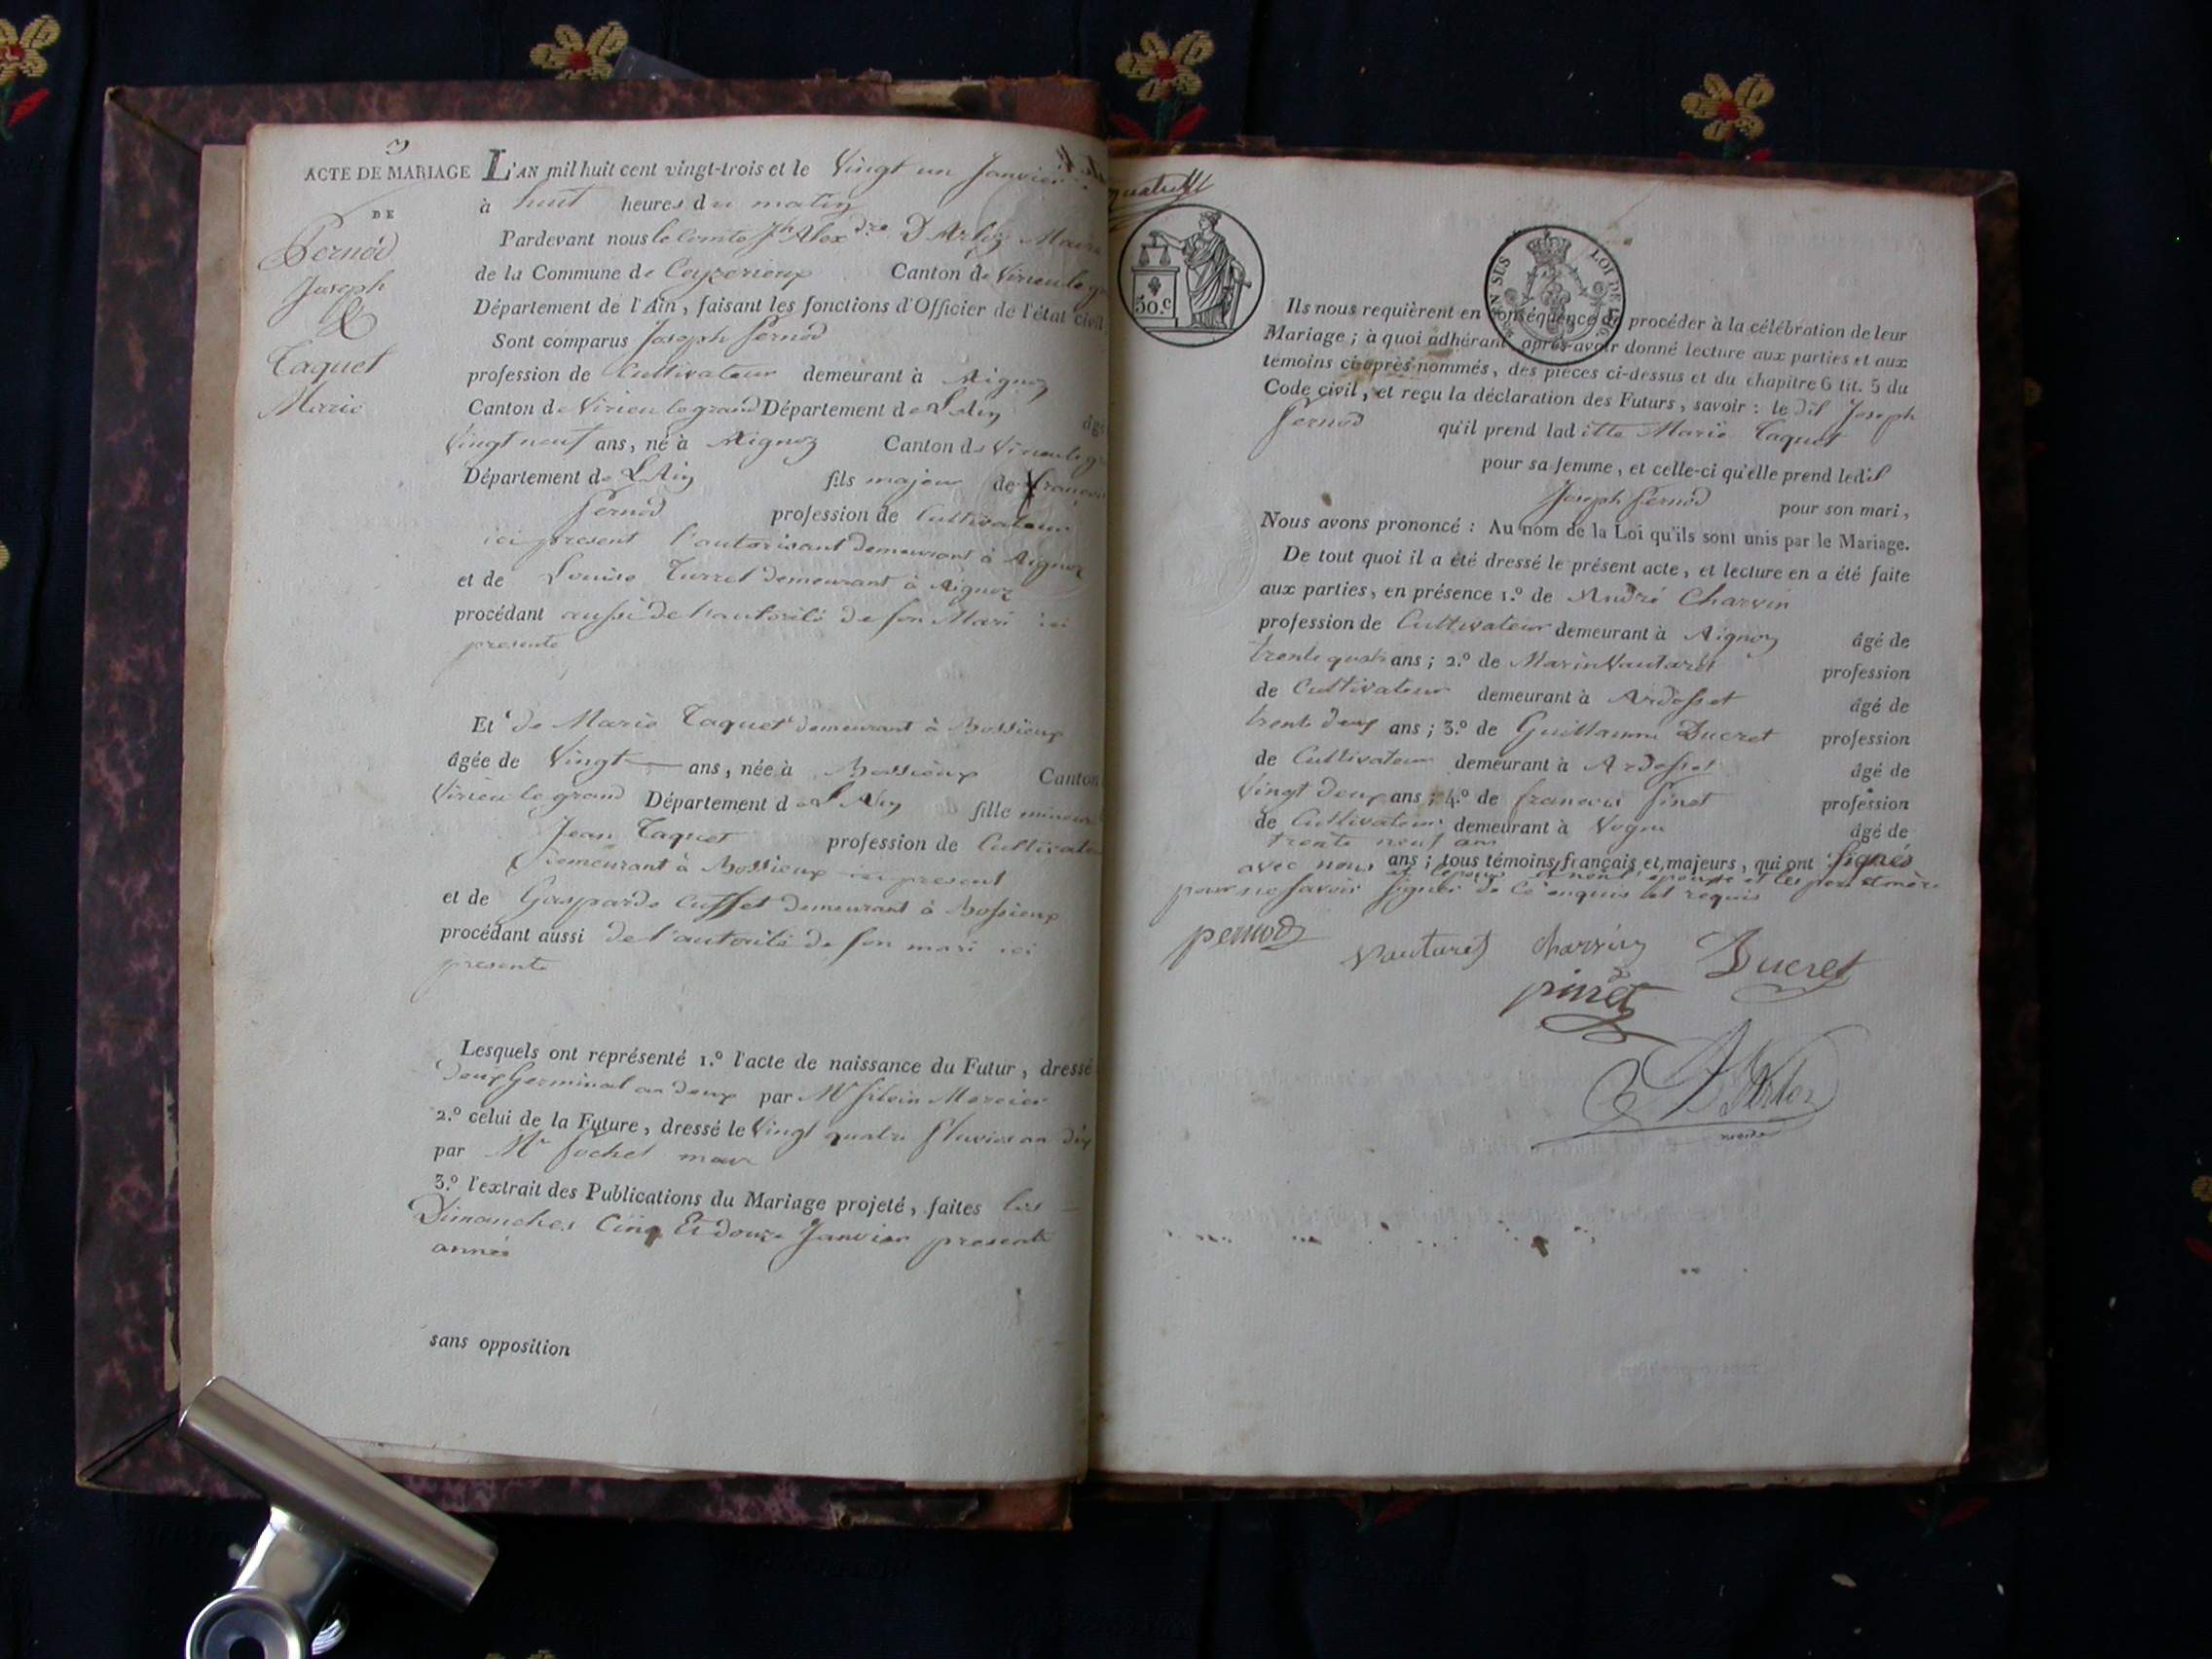 3
ACTE DE MARIAGE
DE
Pernod
Joseph
&
Taquet
Marie
L'AN mil huit cent vingt-trois et le Vingt un Janvier
à huit heures du matin
Pardevant nous le Comte Jh Alexdre D'Arloz Maire
de la Commune de Ceyzerieux Canton de Virieu le
Département de l'Ain, faisant les fonctions d'Officier de l'état civil
Sont comparus Joseph Pernod
profession de Cultivateur demeurant à Aignoz
Canton de Virieu le grand Département de L'Ain âgé
Vingt neuf ans, né à Aignoz Canton de Virieu le
Département de L'Ain fils majeur de francois
Pernod profession de Cultivateur
ici present l'autorisant demeurant à Aignoz
et de Louise Turrel demeurant à Aignoz
procédant aussi de l'autorité de son Mari ici
presente
Et de Marie Taquet demeurant à Bossieux
âgée de Vingt ans, née à Bossieux Canton
Virieu le grand Département de L'Ain fille mineure
Jean Taquet profession de Cultivateur
demeurant à Bossieux ici present
et de Gasparde Cusset demeurant à Bossieux
procédant aussi de l'autorité de son mari ici
presente
Lesquels ont représenté 1.º l'acte de naissance du Futur, dressé
deux Germinal an deux par Mr Silvin Mercier
2.º celui de la Future, dressé le Vingt quatre Pluviose an dix
par Mr Pochet maire
3.º l'extrait des Publications du Mariage projeté, faites les
Dimanches Cinq Et douze Janvier presente
année
sans opposition
50 c
LOI DE 1816
Ils nous requièrent en conséquence de procéder à la célébration de leur
Mariage; à quoi adhérant, après avoir donné lecture aux parties et aux
témoins ci-après nommés, des pièces ci-dessus et du chapitre 6 tit. 5 du
Code civil, et reçu la déclaration des Futurs, savoir: le dit Joseph
Pernod qu'il prend laditte Marie Taquet
pour sa femme, et celle-ci qu'elle prend ledit
Joseph Pernod pour son mari,
Nous avons prononcé: Au nom de la Loi qu'ils sont unis par le Mariage.
De tout quoi il a été dressé le présent acte, et lecture en a été faite
aux parties, en présence 1.º de André Charvin
profession de Cultivateur demeurant à Aignoz âgé de
trente quatre ans; 2.º de Marin Vautaret profession
de Cultivateur demeurant à Ardosset âgé de
trente deux ans; 3.º de Guillaume Ducret profession
de Cultivateur demeurant à Ardosset âgé de
Vingt deux ans; 4.º de francois Pinet profession
de Cultivateur demeurant à Vogne âgé de
trente neuf ans
avec nous ans; tous témoins français et majeurs, qui ont signés
et l'époux et non l'épouse et les pere et mère
pour ne savoir signer de ce enquis et requis
pernod
Vautaret Charvin Ducret
pinet
D'Arloz
maire